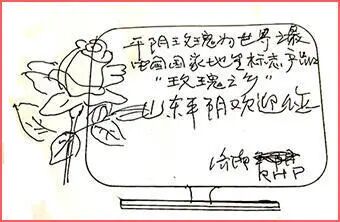 平阴玫瑰为世界之最
中国国家地里标志产品
"玫瑰之乡"
山东平阴欢迎您
济南
RHP